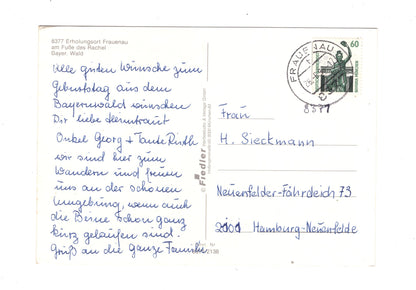 8377 Erholungsort Frauenau
am Fuße des Rachel
Bayer. Wald
Alle guten Wünsche zum
Geburtstag aus dem
Bayerwald wünschen
Dir liebe
Onkel Georg + Tante Ruth
wir sind hier zum
Wandern und freun
uns an der schönen
Umgebung, wenn auch
die Beine schon ganz
kurz gelaufen sind.
Gruß an die ganze Familie
Fiedler
FRAUENAU
8377
60
Frau
H. Sieckmann
Neuenfelder-Fährdeich 73
Hamburg-Neuenfelde